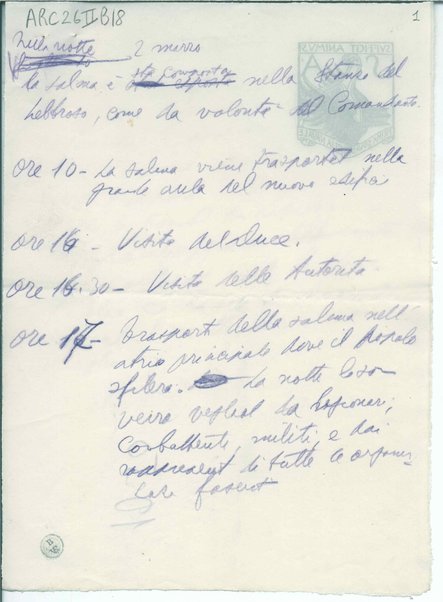 ARC26IIB18
1
Nella notte 2 marzo
la salma è sta composta nella Stanza del
Lebbroso, come da volontà del Comandante.
Ore 10 - La salma viene trasportat nella
grande aula del nuovo
Ore 16 - Visita del Duce.
Ore 16.30 - Visita delle Autorità
Ore 17 - trasport della salma nell'
atrio principale dove il popolo
sfilerà. La notte
veira da
Combattenti, militi, e dai
di tutte le